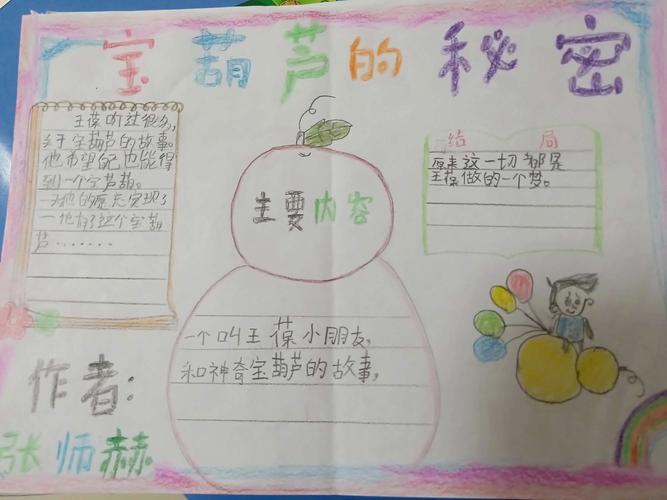 宝葫芦的秘密
王葆听过很多,
关于宝葫芦的故事。
他希望自己也能得
到一个宝葫芦。
一天他的愿望实现了
一他有了这个宝葫
芦……..
主要内容
一个叫王葆小朋友,
和神奇宝葫芦的故事,
结局
原来这一切都是
王葆做的一个梦。
作者:
张师赫